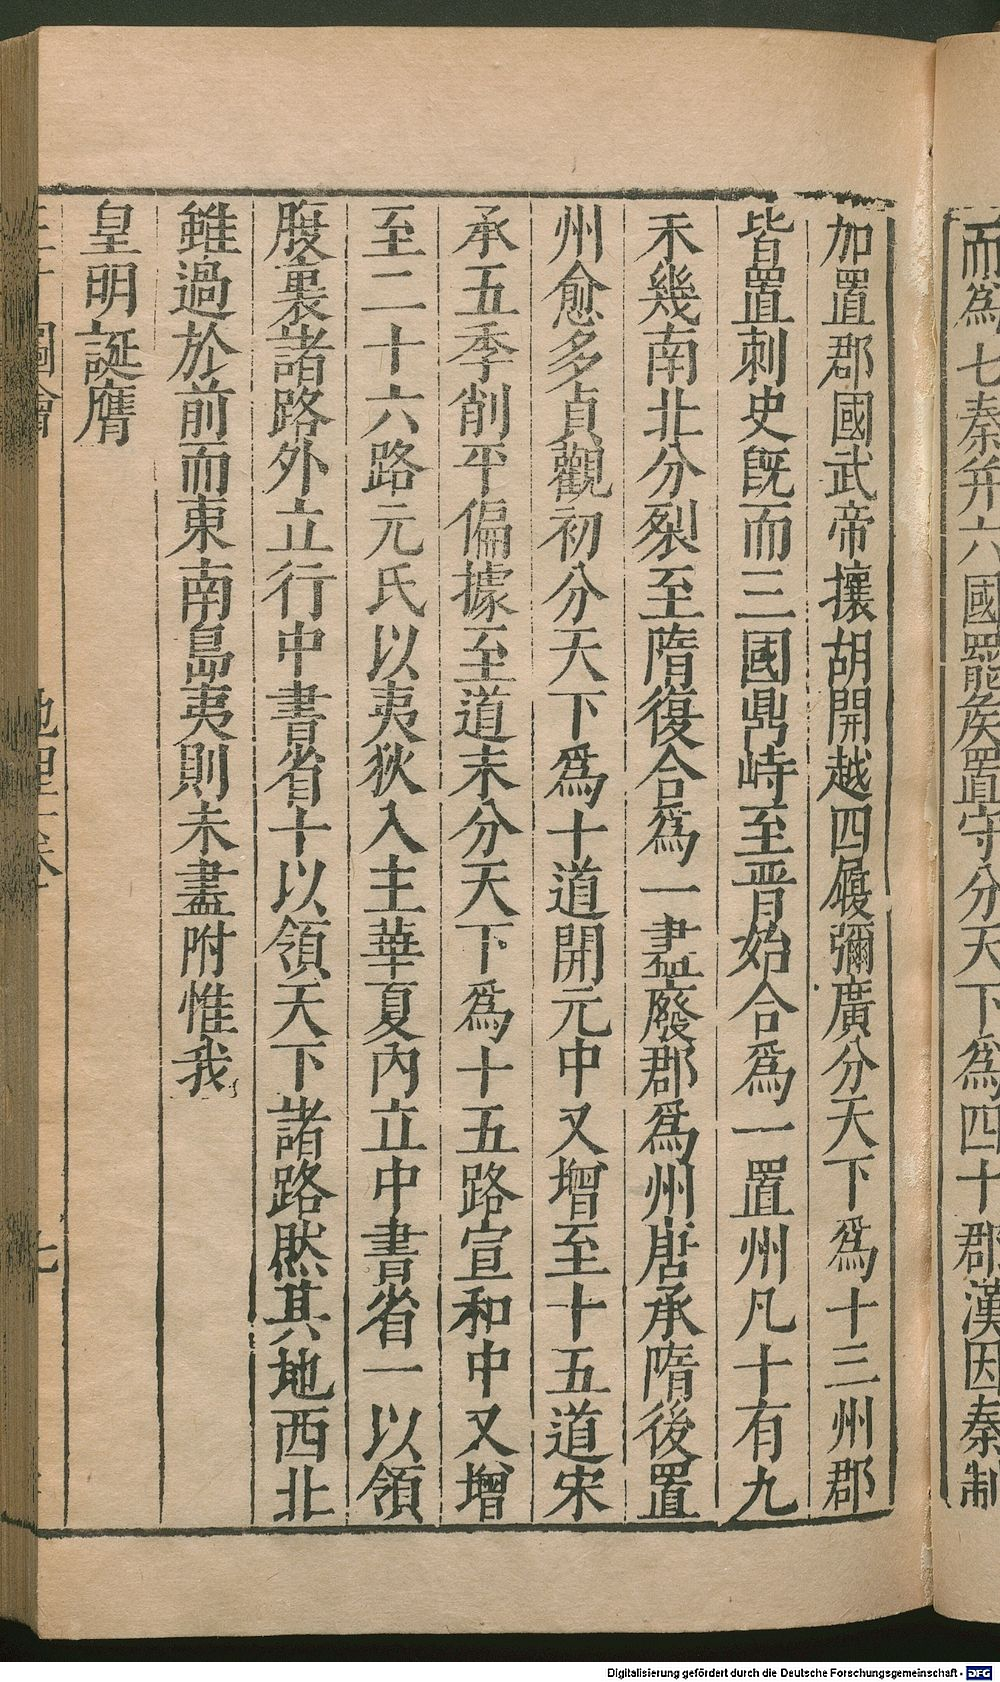 而為七秦并六國罷矦置守分天下為四十郡漢因秦制
加置郡國武帝攘胡開越四履彌廣分天下爲十三州郡
皆置刺史旣而三國鼎峙至晋始合爲一置州凡十有九
未幾南北分裂至隋復合爲一盡廢郡爲州唐承隋後置
州愈多貞觀初分天下爲十道開元中又增至十五道宋
承五季削平偏據至道末分天下爲十五路宣和中又增
至二十六路元氏以夷狄入主華夏內立中書省一以領
腹裏諸路外立行中書省十以領天下諸路然其地西北
雖過於前而東南島夷則未盡附惟我
皇明誕膺
圖會 地理一卷 七
Digitalisierung gefördert durch die Deutsche Forschungsgemeinschaft - DFG